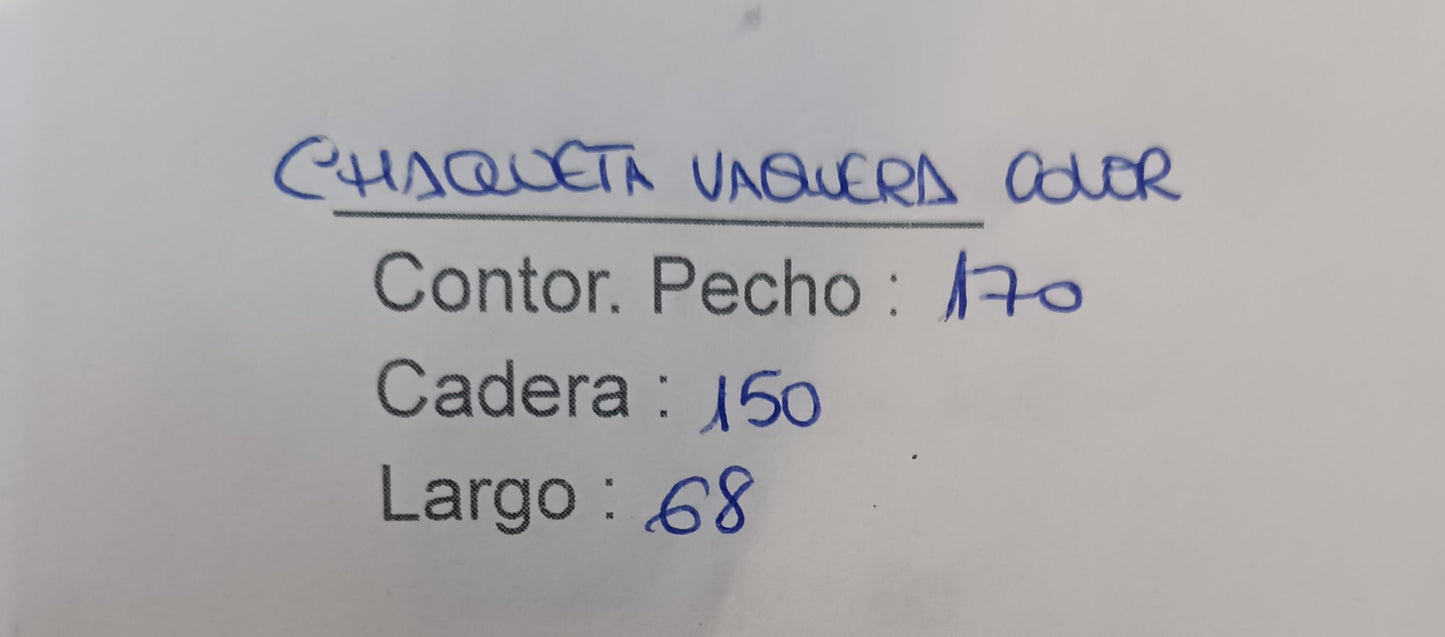 CHAQUETA VAQUERA COLOR
Contor. Pecho : 170
Cadera : 150
Largo : 68